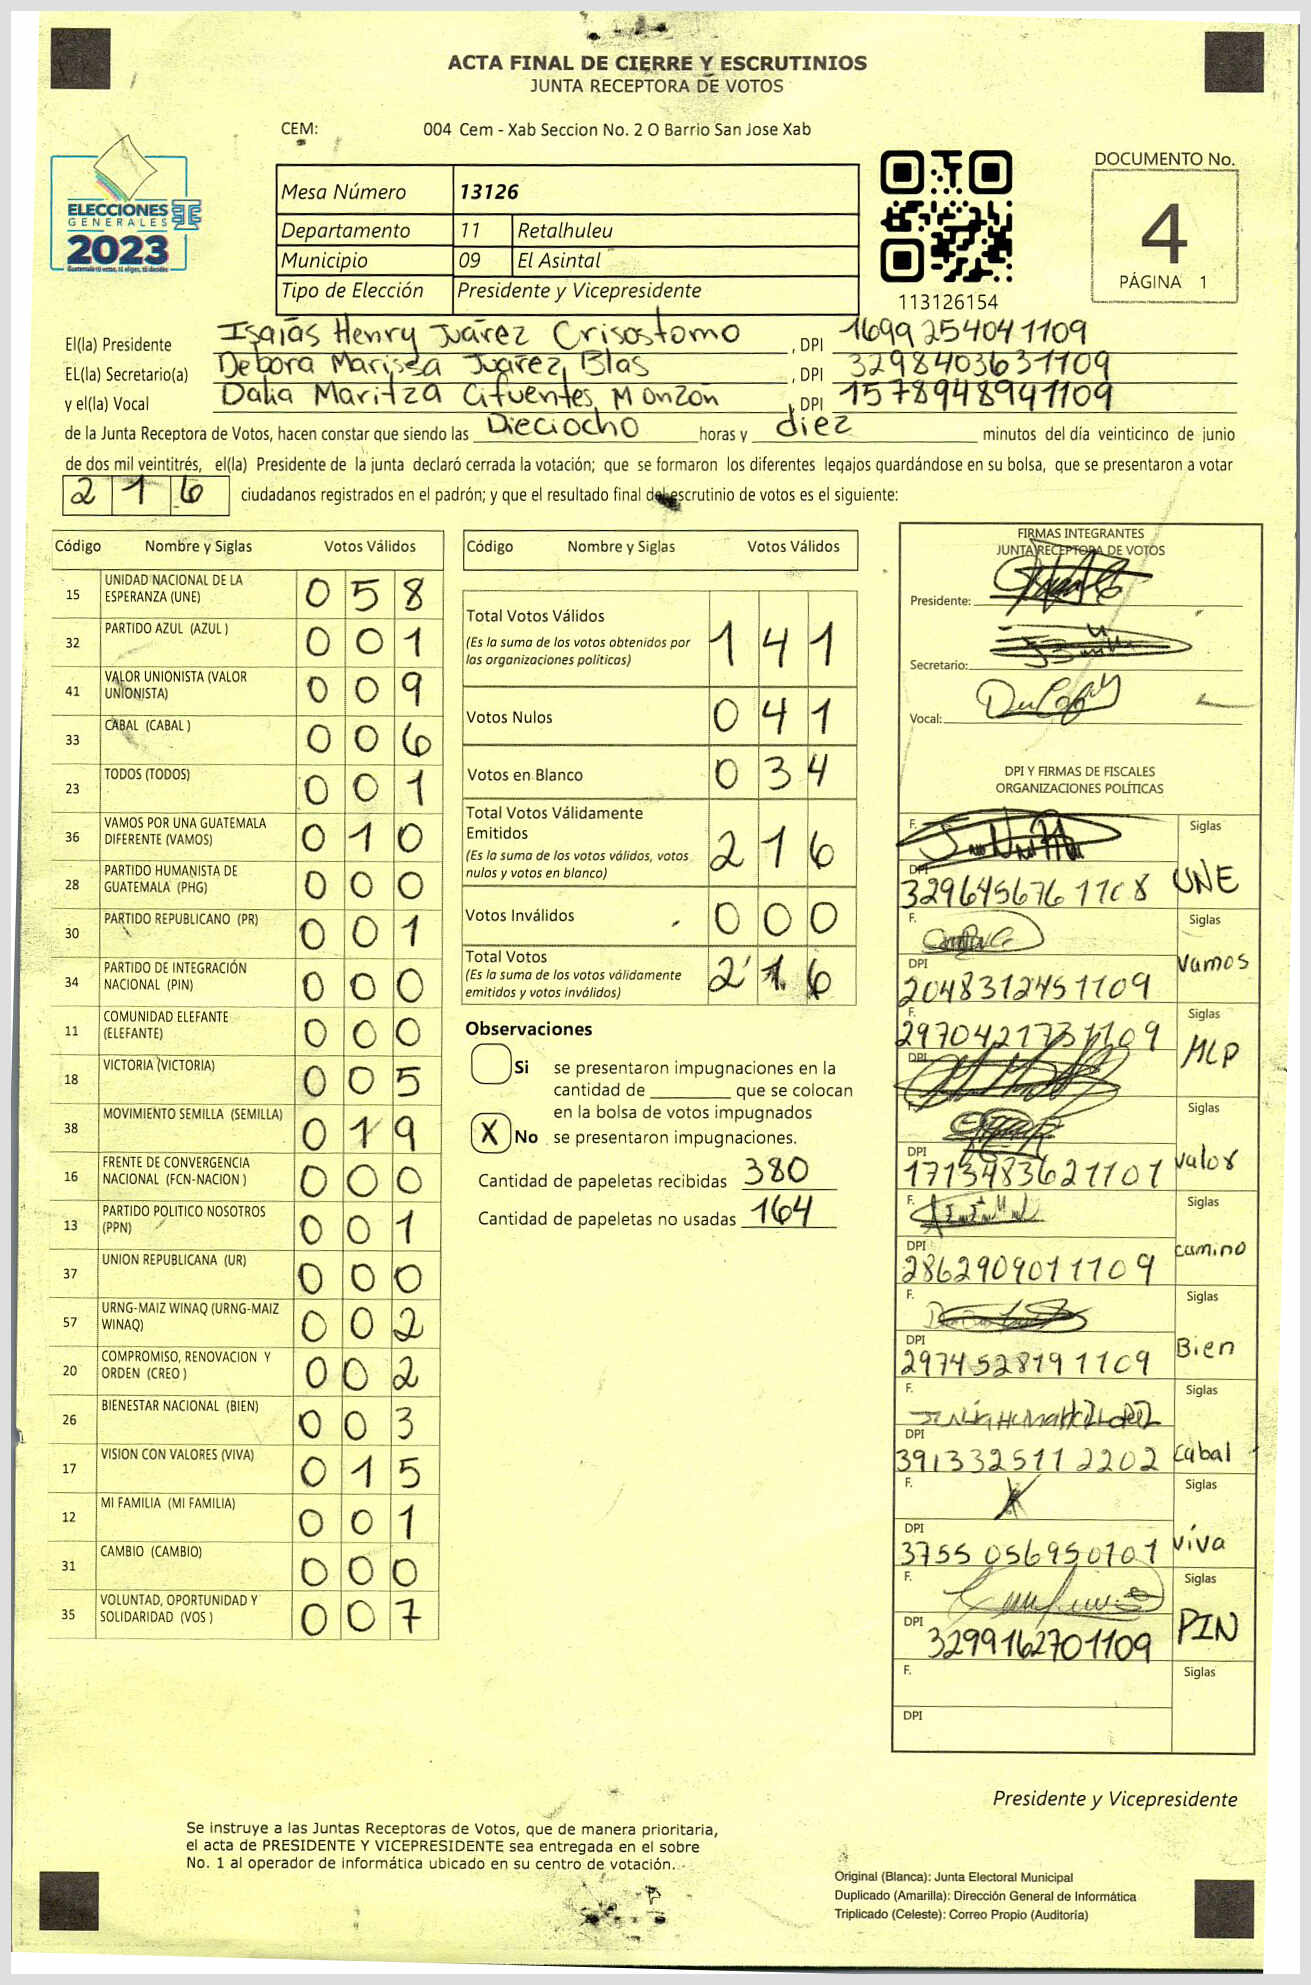 ACTA FINAL DE CIERRE Y ESCRUTINIOS
JUNTA RECEPTORA DE VOTOS
CEM: 004 Cem - Xab Seccion No. 2 O Barrio San Jose Xab
ELECCIONES
GENERALES
2023
Mesa Número 13126
Departamento 11 Retalhuleu
Municipio 09 El Asintal
Tipo de Elección Presidente y Vicepresidente
113126154
DOCUMENTO No.
4
PÁGINA 1
El(la) Presidente Isaías Henry Juárez Crisostomo , DPI 1699254041109
EL(la) Secretario(a) Debora Marissa Juárez Blas , DPI 3298403631109
y el(la) Vocal Dalia Maritza Cifuentes Monzón , DPI 1578948941109
de la Junta Receptora de Votos, hacen constar que siendo las Dieciocho horas y diez minutos del día veinticinco de junio
de dos mil veintitrés, el(la) Presidente de la junta declaró cerrada la votación; que se formaron los diferentes legajos guardándose en su bolsa, que se presentaron a votar
216 ciudadanos registrados en el padrón; y que el resultado final del escrutinio de votos es el siguiente:
Código Nombre y Siglas Votos Válidos
15 UNIDAD NACIONAL DE LA ESPERANZA (UNE) 0 5 8
32 PARTIDO AZUL (AZUL ) 0 0 1
41 VALOR UNIONISTA (VALOR UNIONISTA) 0 0 9
33 CABAL (CABAL ) 0 0 6
23 TODOS (TODOS) 0 0 1
36 VAMOS POR UNA GUATEMALA DIFERENTE (VAMOS) 0 1 0
28 PARTIDO HUMANISTA DE GUATEMALA (PHG) 0 0 0
30 PARTIDO REPUBLICANO (PR) 0 0 1
34 PARTIDO DE INTEGRACIÓN NACIONAL (PIN) 0 0 0
11 COMUNIDAD ELEFANTE (ELEFANTE) 0 0 0
18 VICTORIA (VICTORIA) 0 0 5
38 MOVIMIENTO SEMILLA (SEMILLA) 0 1 9
16 FRENTE DE CONVERGENCIA NACIONAL (FCN-NACION ) 0 0 0
13 PARTIDO POLITICO NOSOTROS (PPN) 0 0 1
37 UNION REPUBLICANA (UR) 0 0 0
57 URNG-MAIZ WINAQ (URNG-MAIZ WINAQ) 0 0 2
20 COMPROMISO, RENOVACION Y ORDEN (CREO ) 0 0 2
26 BIENESTAR NACIONAL (BIEN) 0 0 3
17 VISION CON VALORES (VIVA) 0 1 5
12 MI FAMILIA (MI FAMILIA) 0 0 1
31 CAMBIO (CAMBIO) 0 0 0
35 VOLUNTAD, OPORTUNIDAD Y SOLIDARIDAD (VOS ) 0 0 7
Código Nombre y Siglas Votos Válidos
Total Votos Válidos
(Es la suma de los votos obtenidos por las organizaciones políticas) 1 4 1
Votos Nulos 0 4 1
Votos en Blanco 0 3 4
Total Votos Válidamente Emitidos
(Es la suma de los votos válidos, votos nulos y votos en blanco) 2 1 6
Votos Inválidos 0 0 0
Total Votos
(Es la suma de los votos válidamente emitidos y votos inválidos) 2 1 6
Observaciones
Si se presentaron impugnaciones en la
cantidad de ________ que se colocan
en la bolsa de votos impugnados
X No se presentaron impugnaciones.
Cantidad de papeletas recibidas 380
Cantidad de papeletas no usadas 164
FIRMAS INTEGRANTES
JUNTA RECEPTORA DE VOTOS
Presidente:
Secretario:
Vocal:
DPI Y FIRMAS DE FISCALES
ORGANIZACIONES POLÍTICAS
F. Siglas
DPI 3296456761108 UNE
F. Siglas
DPI 2048312451109 Vamos
F. 2970421731109 Siglas
DPI MLP
F. Siglas
DPI 1713483621101 valor
F. Siglas
DPI 2862909011109 camino
F. Siglas
DPI 2974528191109 Bien
F. Siglas
DPI 3913325112202 cabal
F. Siglas
DPI 3755056950101 viva
F. Siglas
DPI 3299162701109 PIN
F. Siglas
DPI
Presidente y Vicepresidente
Se instruye a las Juntas Receptoras de Votos, que de manera prioritaria,
el acta de PRESIDENTE Y VICEPRESIDENTE sea entregada en el sobre
No. 1 al operador de informática ubicado en su centro de votación.
Original (Blanca): Junta Electoral Municipal
Duplicado (Amarilla): Dirección General de Informática
Triplicado (Celeste): Correo Propio (Auditoría)